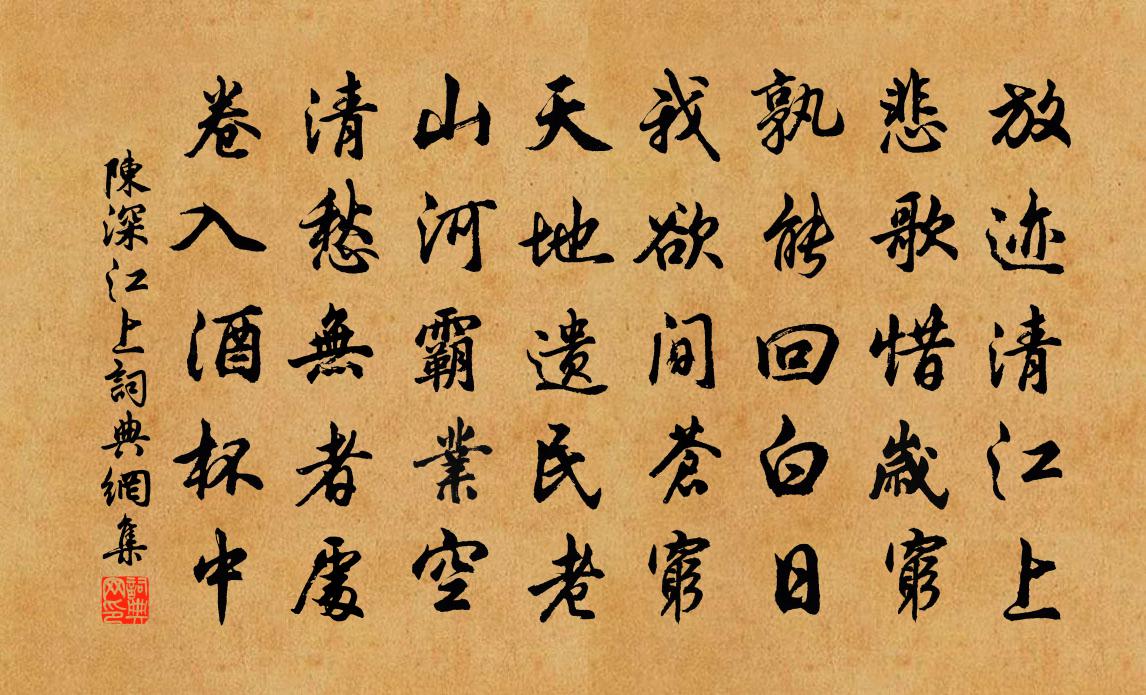 放迹清江上
悲歌惜歲窮
孰能回白日
我欲間蒼窮
天地遗民老
山河霸業空
清愁無者處
卷入酒杯中
陳深江上詞典網集
詞典网印